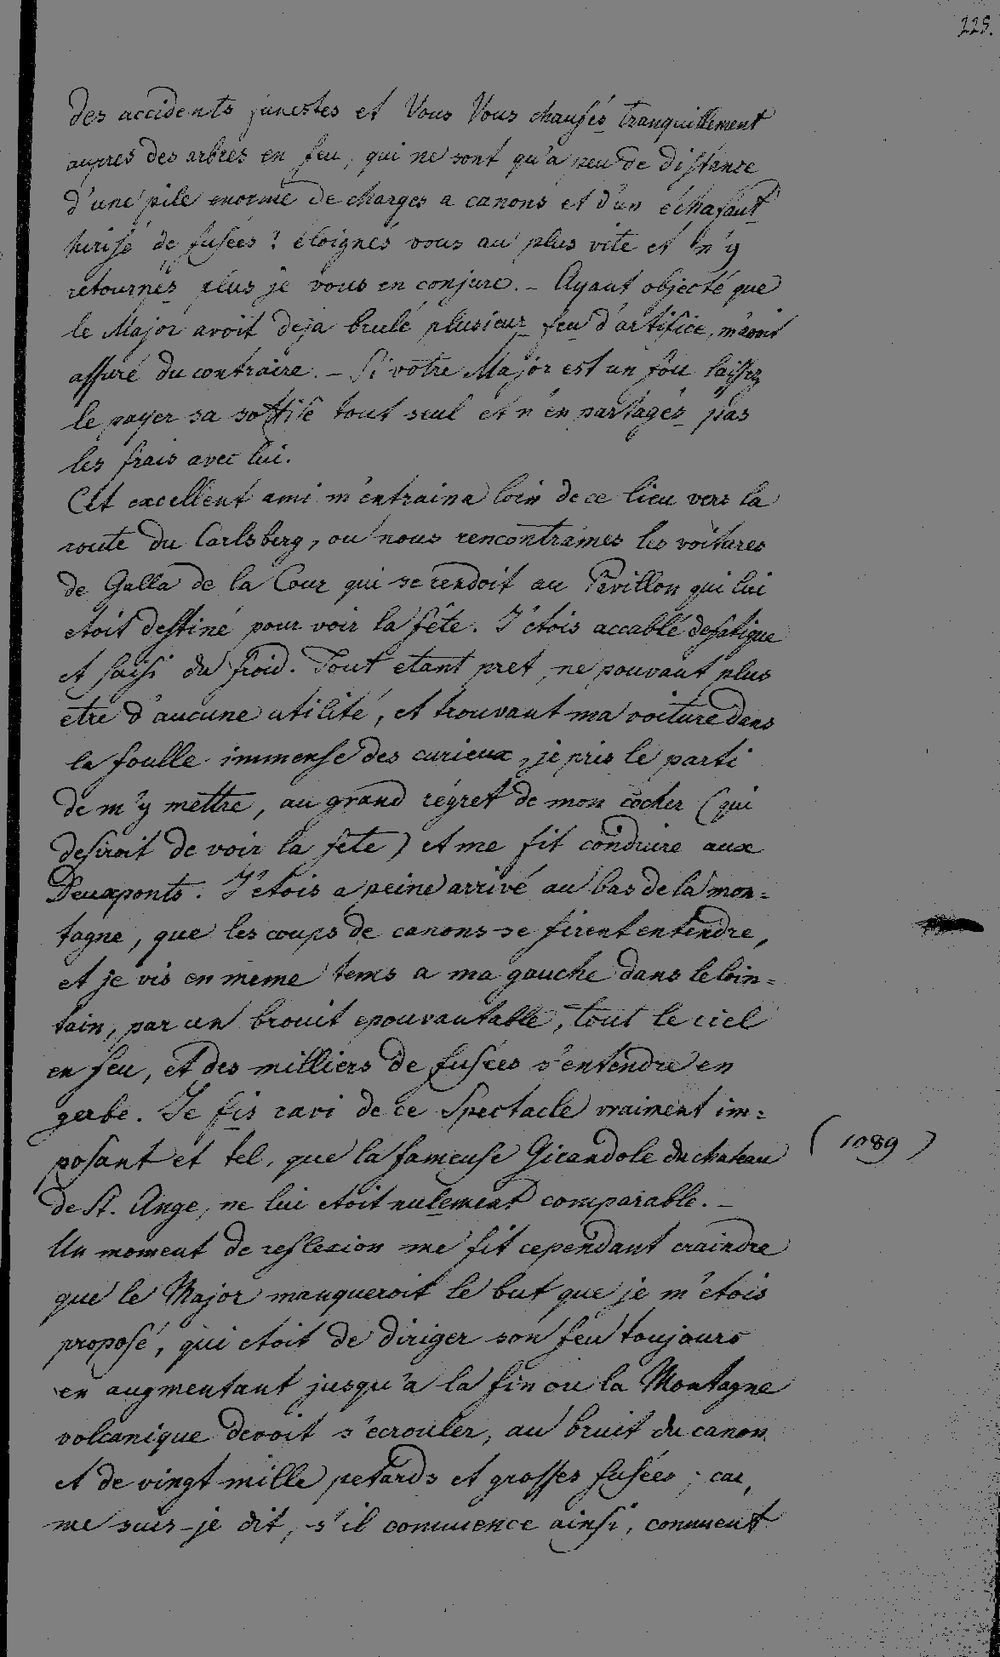 225.
des accidents funestes et Vous Vous chaufés tranquillement
aupres des arbres en feu, qui ne sont qu'a peu de distance
d'une pile enorme de charges a canons et d'un echafaut
hirisé de fusées? éloignés vous au plus vite et n'y
retournés plus je vous en conjure. – Ayant objecté que
le Major avoit deja brulé plusieur feu d'artifice, m'avoit
assuré du contraire. – Si votre Major est un fou laissez
le payer sa sottise tout seul et n'en partagés pas
les frais avec lui.
Cet excellent ami m'entraina loin de ce lieu vers la
route du Carlsberg, ou nous rencontraimes les voitures
de Galla de la Cour qui se rendoit au Pavillon qui lui
etoit destiné pour voir la fête. J'étois accablé de fatigue
et saisi du froid. Tout etant pret, ne pouvant plus
etre d'aucune utilité, et trouvant ma voiture dans
la foulle immense des curieux, je pris le parti
de m'y mettre, au grand régret de mon cocher (qui
desiroit de voir la fête) et me fit conduire aux
Deuxponts. J'etois a peine arrivé au bas de la mon=
tagne, que les coups de canons se firent entendre,
et je vis en meme tems a ma gauche dans le loin=
tain, par un brouit epouvantable, tout le ciel
en feu, et des milliers de fusées s'entendre en
gerbe. Je fis ravi de ce Spectacle vraiment im=
posant et tel, que la fameuse Girandole du chateau
(1089)
de St. Ange, ne lui etoit nulement comparable. –
Un moment de reflexion me fit cependant craindre
que le Major manqueroit le but que je m'etois
proposé, qui etoit de diriger son feu toujours
en augmentant jusqu'a la fin ou la Montagne
volcanique devoit s'ecrouler, au bruit du canon
et de vingt mille petards et grosses fusées; car,
me suis-je dit, s'il commence ainsi, comment